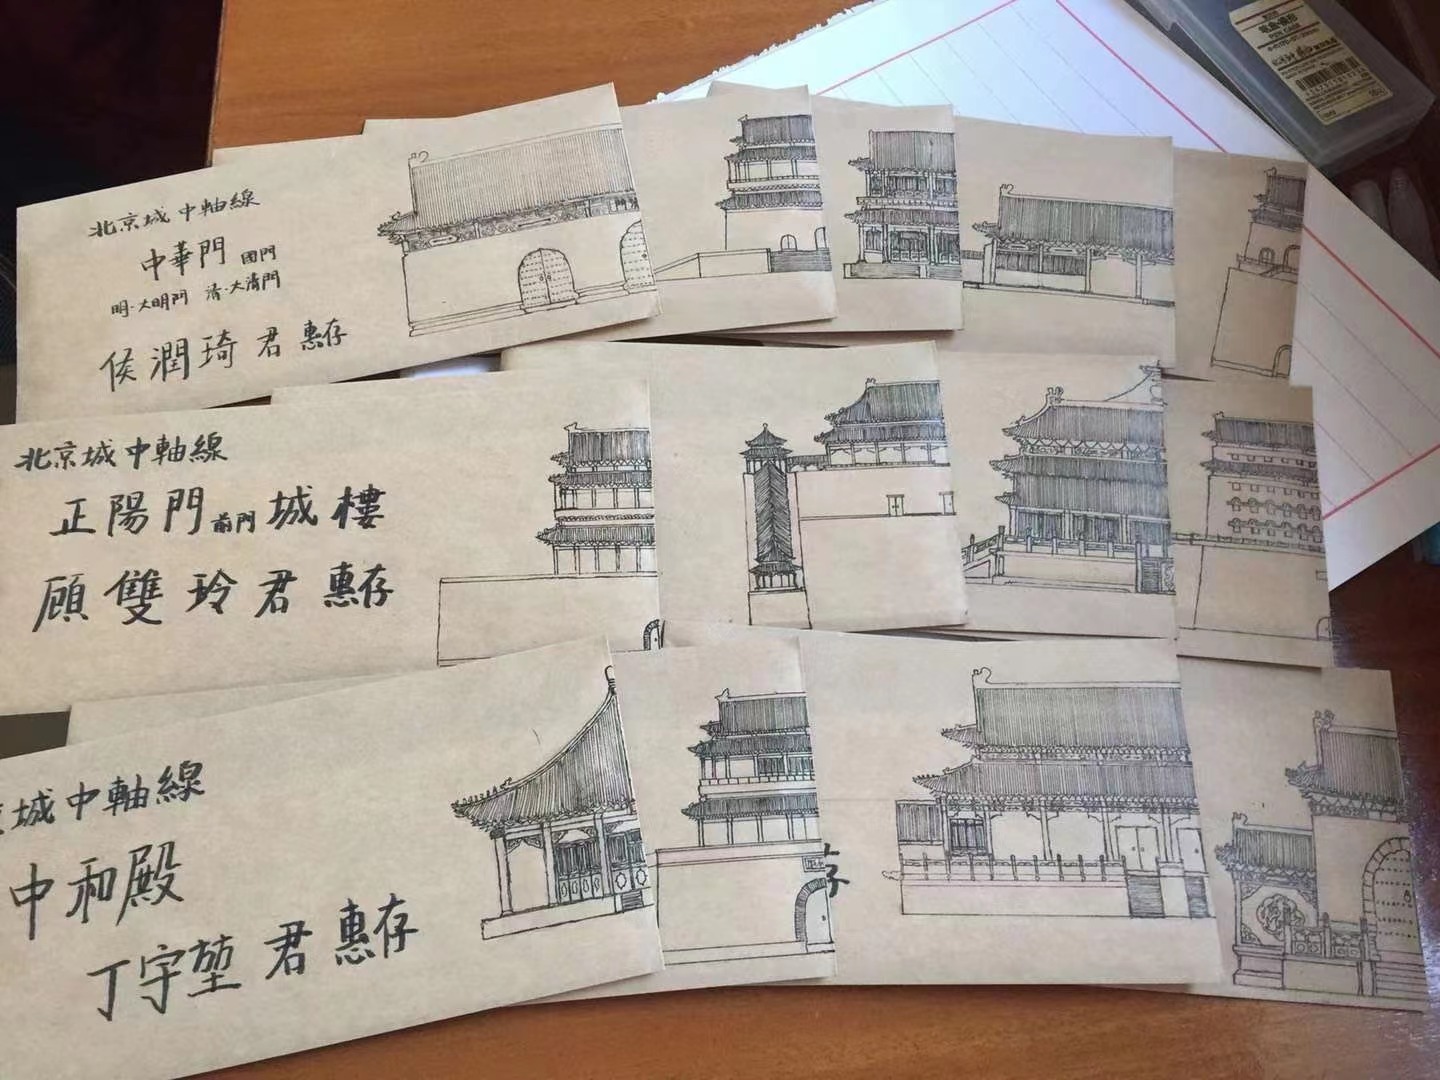 北京城中軸線
中華門 國門
明·大明門 清·大清門
侯潤琦君惠存
北京城中軸線
正陽門前門城樓
顧雙玲君惠存
城中軸線
中和殿
丁宇堃君惠存
存
笔盒·横形
PEN CASE